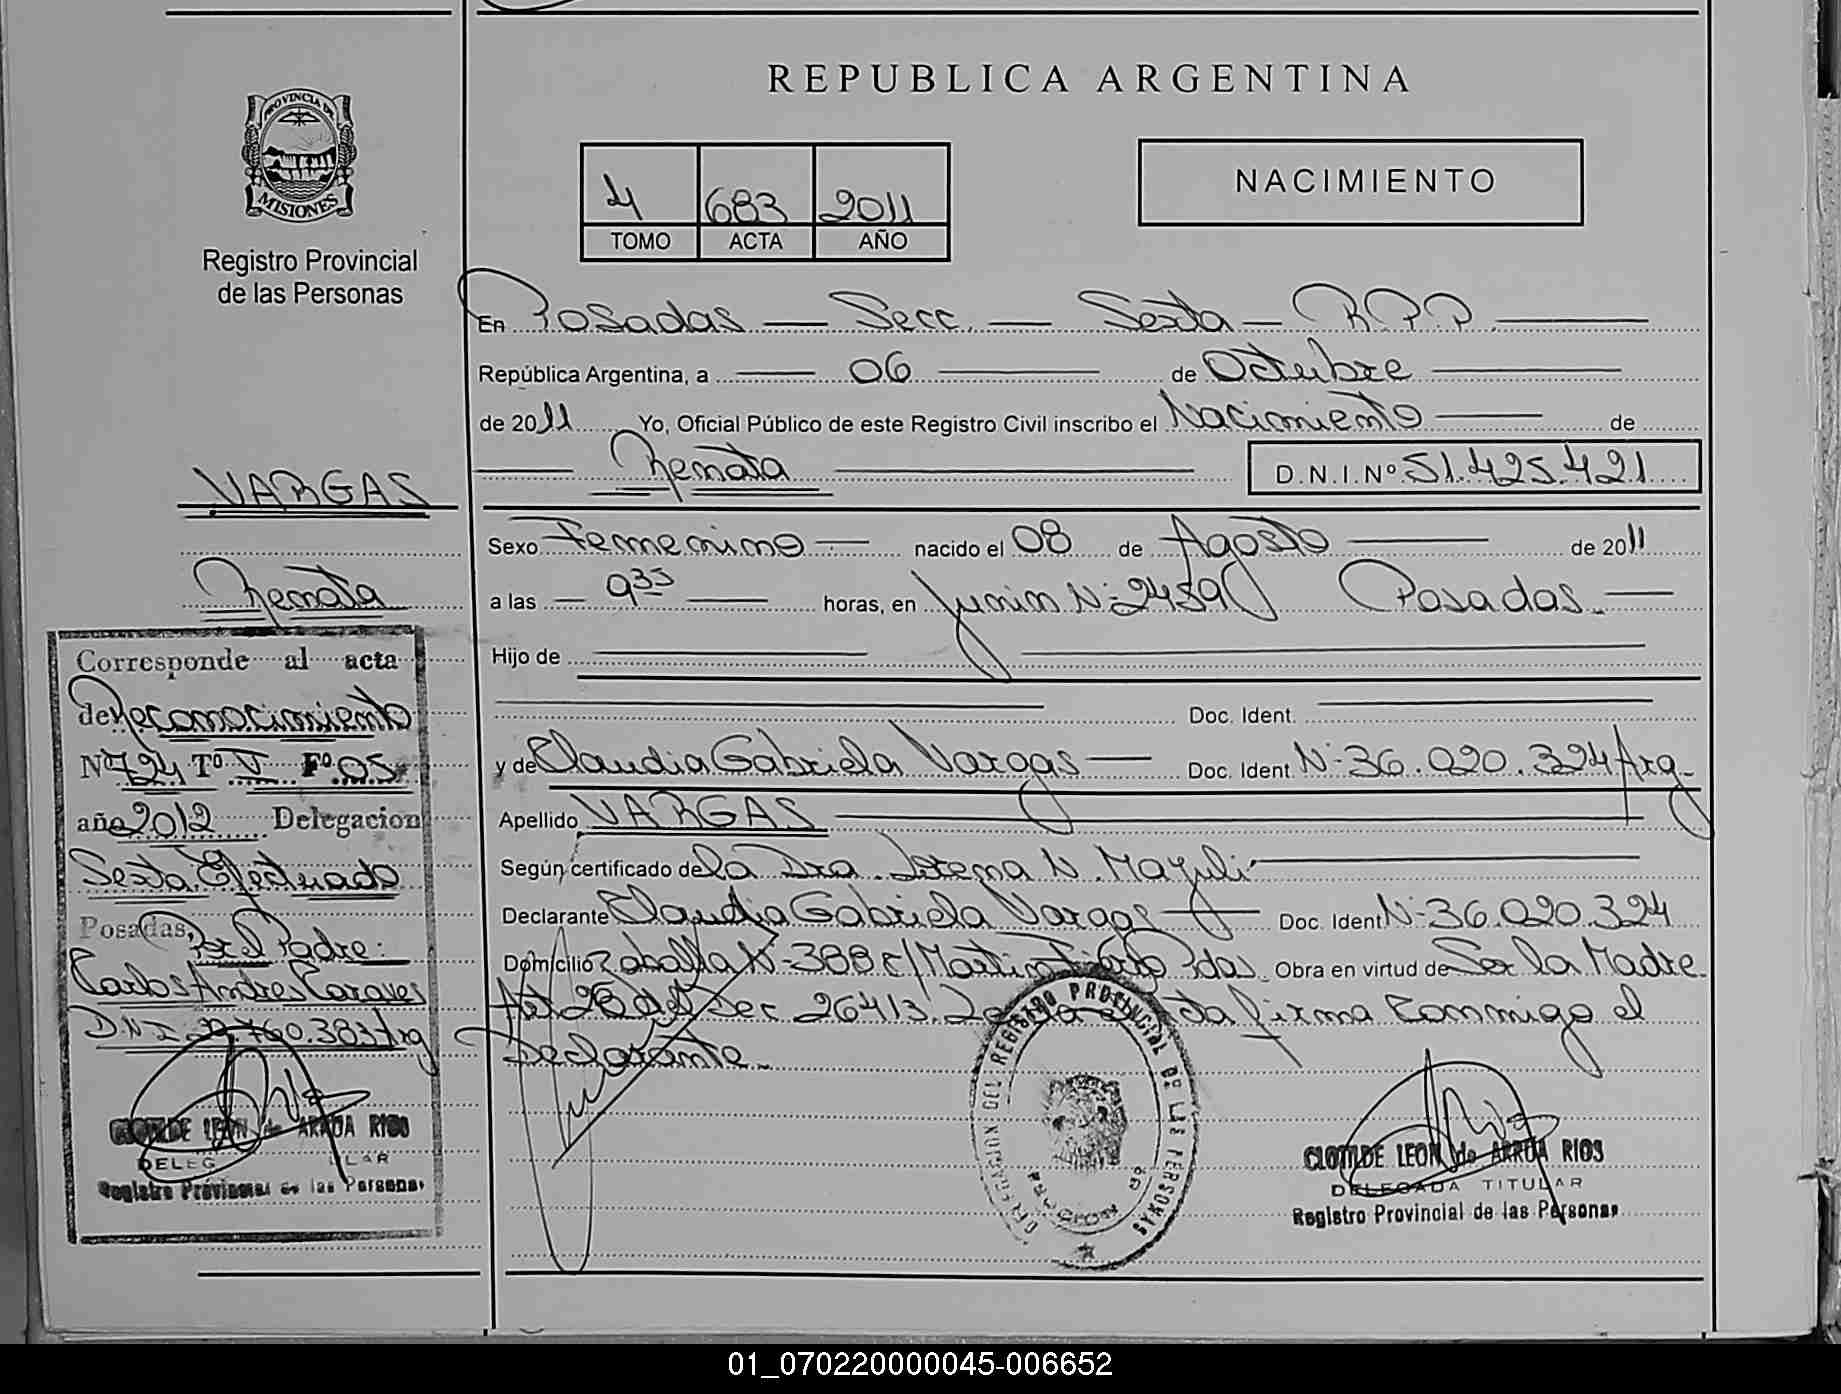 REPUBLICA ARGENTINA
PROVINCIA DE
MISIONES
Registro Provincial
de las Personas
4 683 2011
TOMO ACTA AÑO
NACIMIENTO
En Posadas — Secc. — Sexta — R.P.P.
República Argentina, a 06 de Octubre
de 2011 Yo, Oficial Público de este Registro Civil inscribo el Nacimiento de
Renata D.N.I.Nº 51.425.421
VARGAS
Renata
Sexo Femenino nacido el 08 de Agosto de 2011
a las 9 35 horas, en Junin Nº 2459 Posadas.
Hijo de
Doc. Ident.
y de Claudia Gabriela Vargas Doc. Ident. Nº 36.020.324 Arg.
Apellido VARGAS
Según certificado de la Dra. N.
Declarante Claudia Gabriela Vargas Doc. Ident. Nº 36.020.324
Domicilio Zaballa Nº 388 c/ Martin Fierro Pdas. Obra en virtud de Ser la Madre.
Art 28 del Dec. 26413. Leida Acta firma Conmigo el
Declarante.
Corresponde al acta
de Reconocimiento
Nº 724 Tº V Fº 05
año 2012 Delegacion
Sexta Efectuado
Posadas, Por el Padre:
Carlos Andres
DNI .760.383 Arg
CLOTILDE LEON de ARRUA RIOS
Registro Provincial de las Personas
DELEGACION DEL REGISTRO PROVINCIAL DE LAS PERSONAS
CLOTILDE LEON de ARRUA RIOS
DELEGADA TITULAR
Registro Provincial de las Personas
01_070220000045-006652